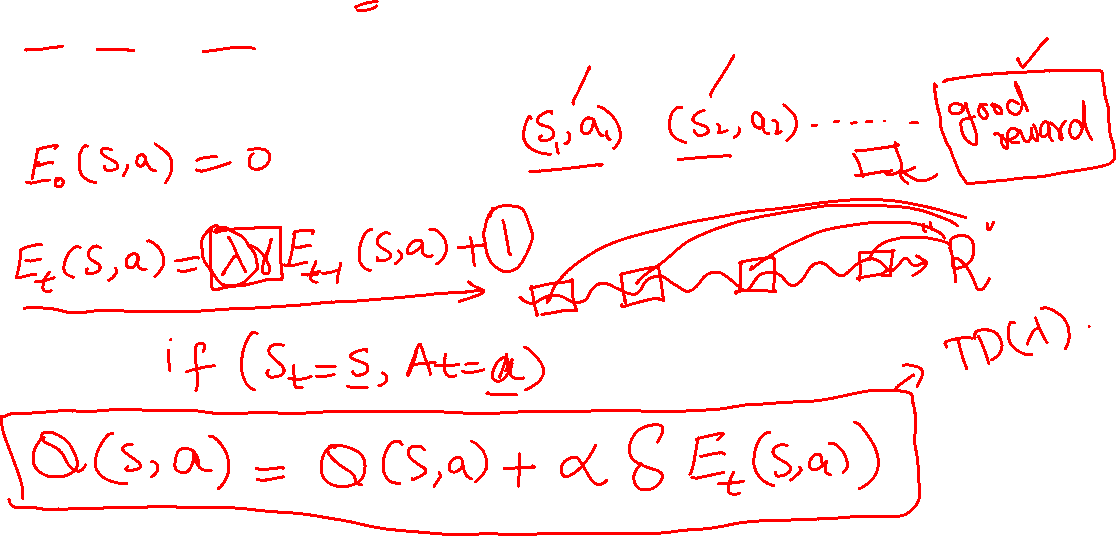 (S₁,a₁) (S₂,a₂) ...... good reward
E₀(S,a) = 0
Eₜ(S,a) = λγ Eₜ₋₁(S,a) + 1
R
if (Sₜ=s, At=a)
TD(λ).
Q(s,a) = Q(s,a) + α δ Eₜ(s,a)